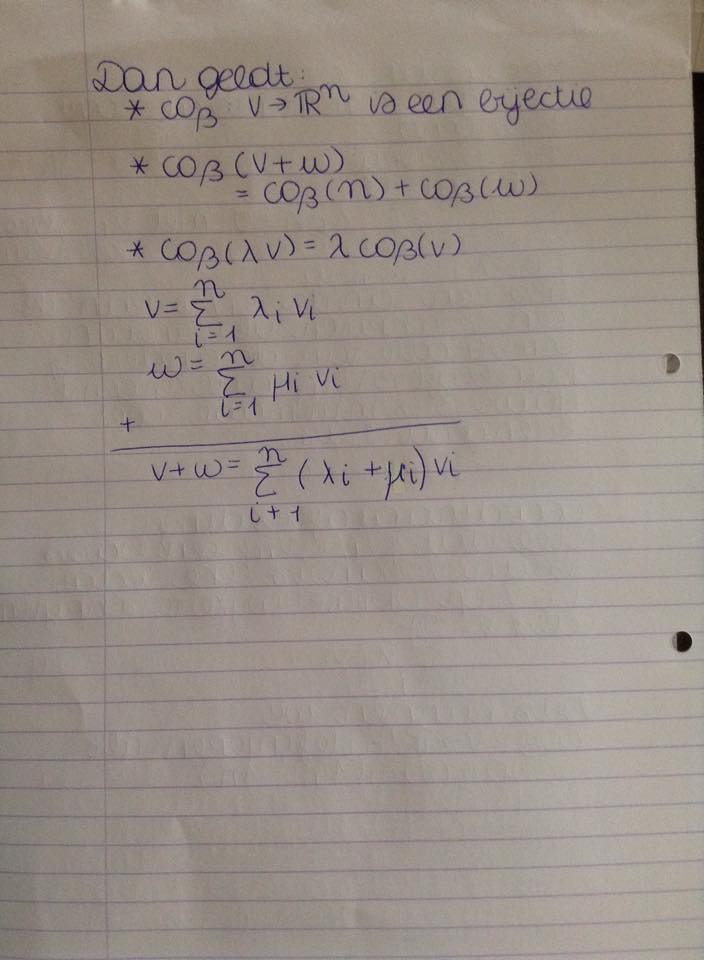 Dan geldt:
* coβ: V → ℝⁿ is een bijectie
* coβ (v+w)
= coβ(n) + coβ(w)
* coβ(λv) = λ coβ(v)
v = ∑ⁿᵢ₌₁ λᵢ vᵢ
w = ∑ⁿᵢ₌₁ μᵢ vᵢ
+
v+w = ∑ⁿᵢ₊₁ (λᵢ + μᵢ) vᵢ